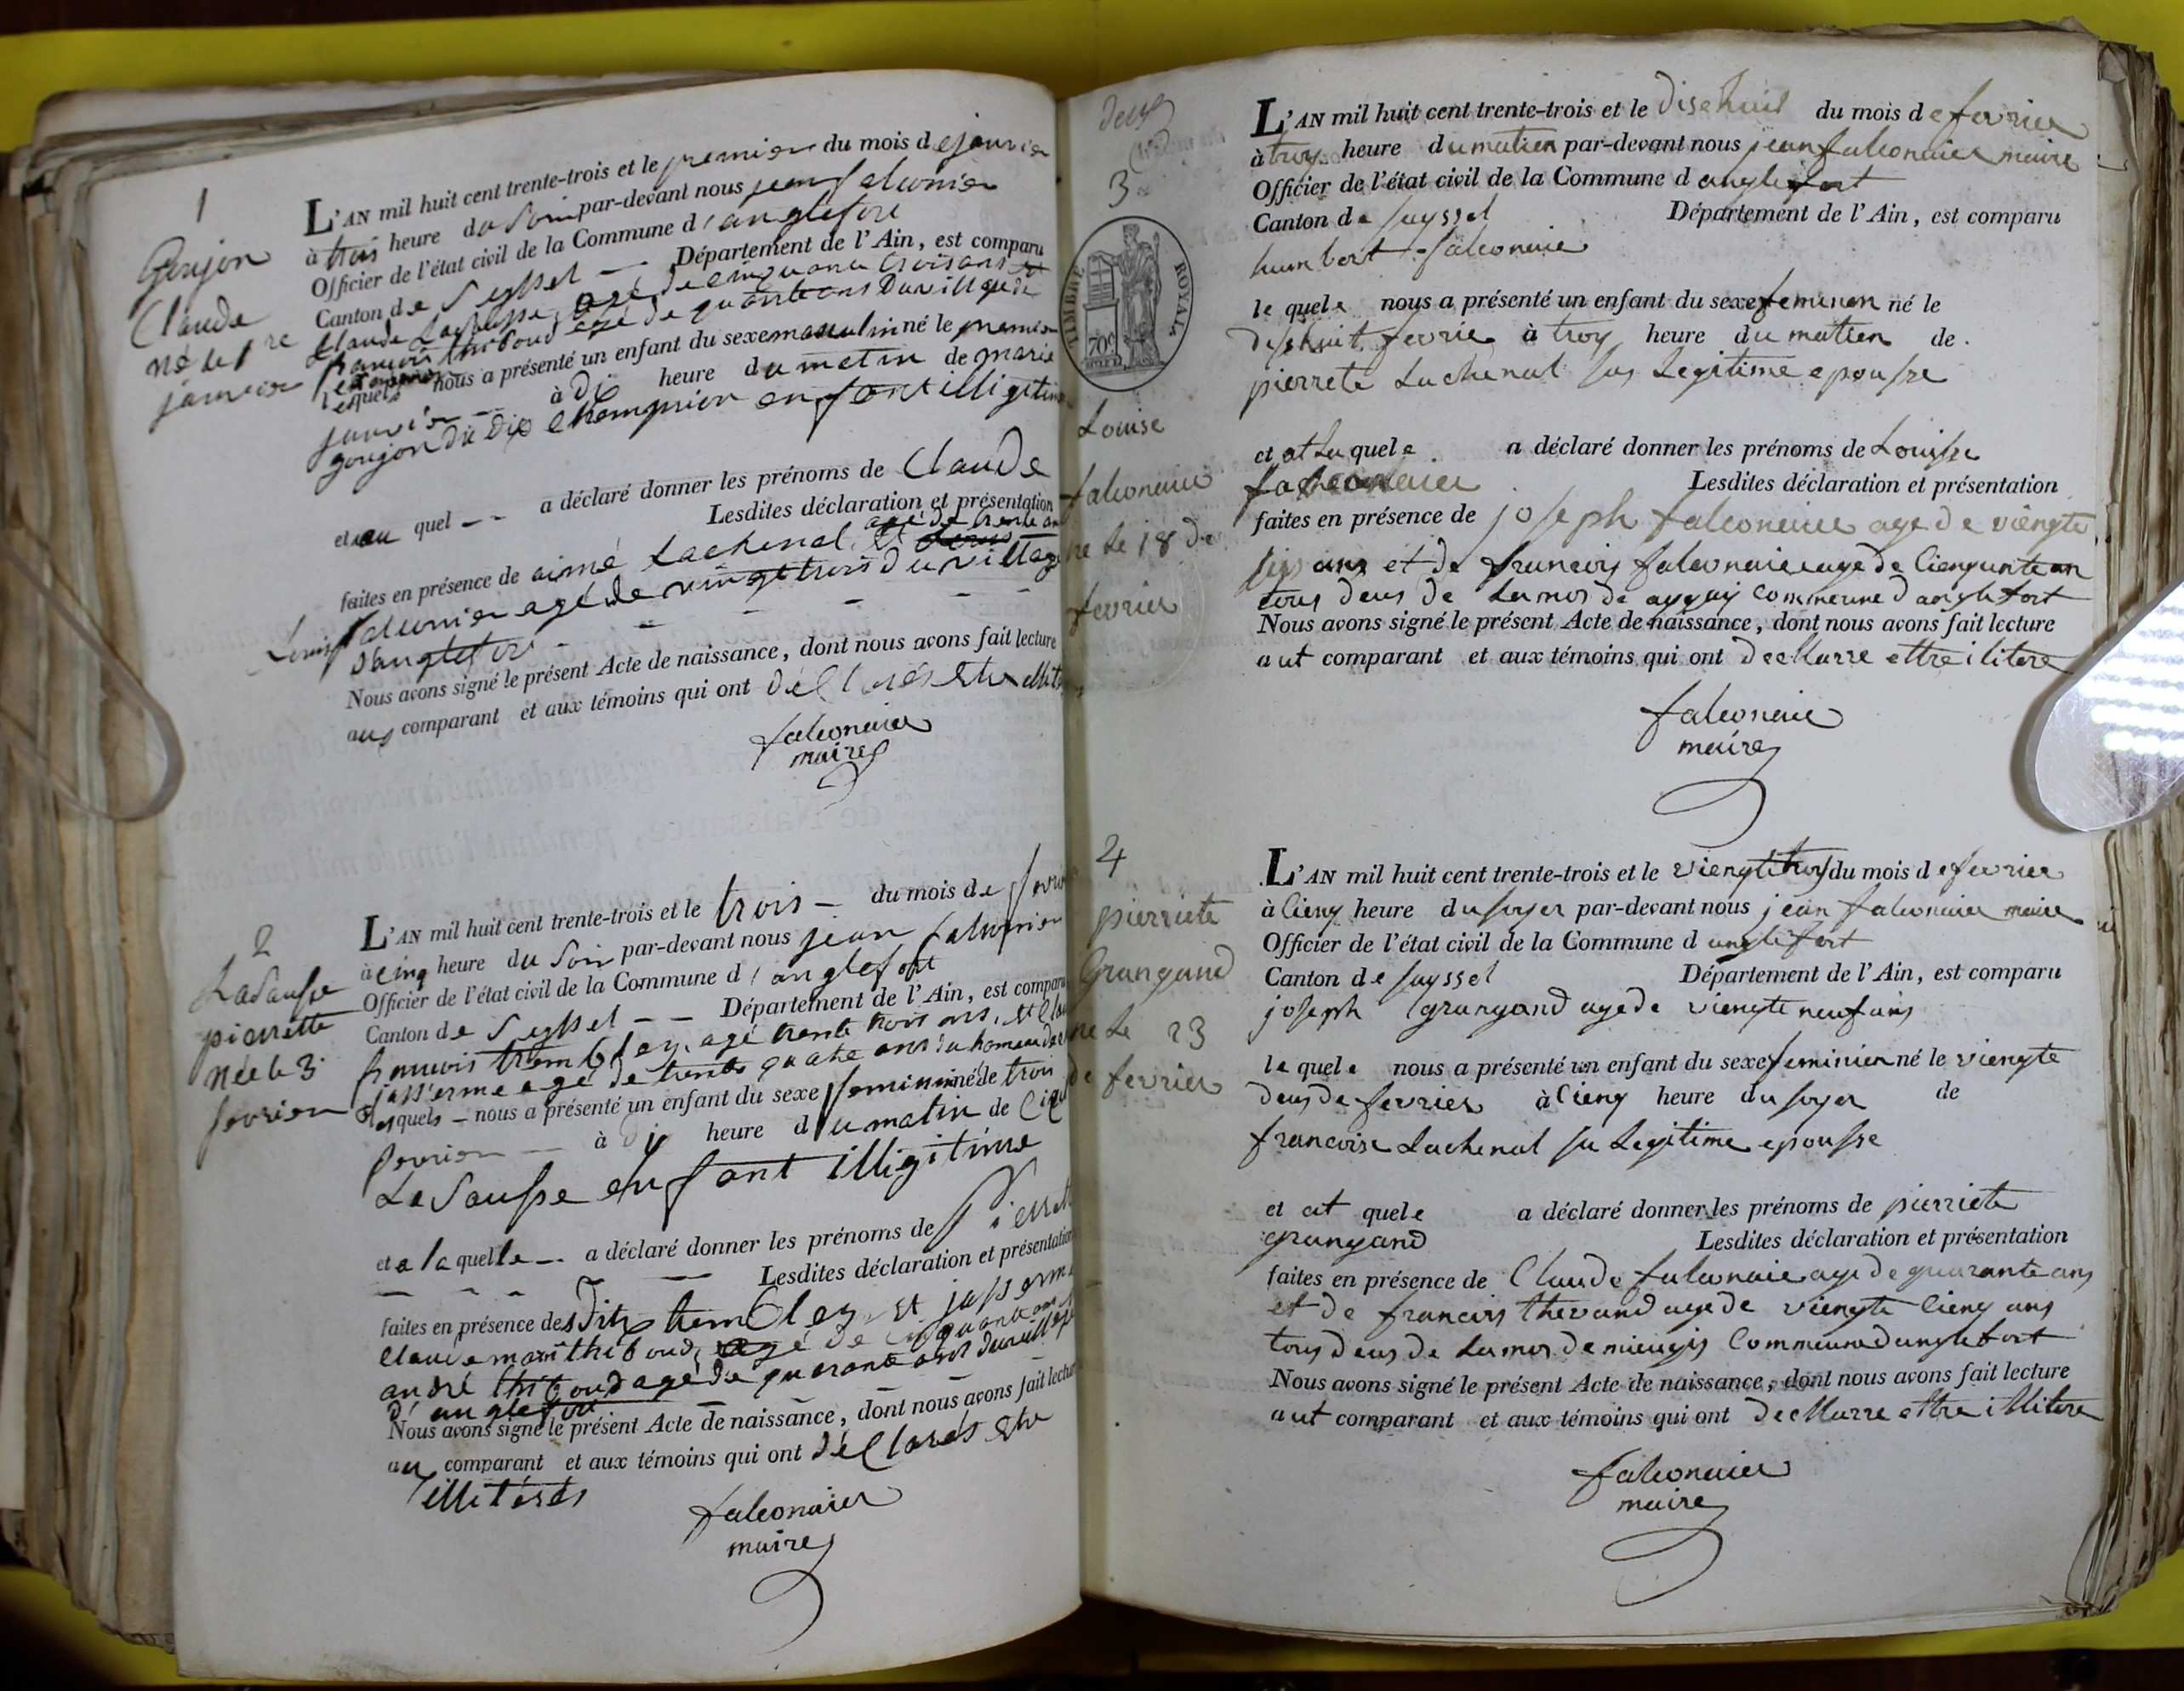 1
Goujon
Claude
né le 1re
janvier
L'AN mil huit cent trente-trois et le premier du mois de janvier
à trois heure du soir par-devant nous jean falconier
Officier de l'état civil de la Commune d'anglefort
Canton de Seyssel — Département de l'Ain, est comparu
Claude agé de cinquante trois ans et
françois thiboud agé de quarante ans du village de
lesquels nous a présenté un enfant du sexe masculin né le premier
janvier — à dix heure du matin de marie
goujon enfant illigitime
et au quel — a déclaré donner les prénoms de Claude
Lesdites déclaration et présentation
agé de trente an
faites en présence de aimé Lachenal et
Louis falconier agé de vingt trois du village
d'anglefort
Nous avons signé le présent Acte de naissance, dont nous avons fait lecture
aux comparant et aux témoins qui ont déclarés etre
falconaier
maire
2
LaSausse
pierrette
née le 3
fevrier
L'AN mil huit cent trente-trois et le trois — du mois de fevrier
à cinq heure du Soir par-devant nous jean falconier
Officier de l'état civil de la Commune d'anglefort
Canton de Seyssel — — Département de l'Ain, est comparu
francois trembley, agé trente trois ans, et
jasserme agé de trente quatre ans du hameau
lesquels — nous a présenté un enfant du sexe feminin né le trois
fevrier — à dix heure du matin de
LaSausse enfant illigitime
et a laquelle — a déclaré donner les prénoms de Pierrette
Lesdites déclaration et présentation
faites en présence des dits trembley et jasserme
Claude thiboud, agé de cinquante ans
andré thiboud agé de quarante ans du village
d'anglefort
Nous avons signé le présent Acte de naissance, dont nous avons fait lecture
aux comparant et aux témoins qui ont déclarés etre
illitérés
falconaier
maire
deux
3
TIMBRE ROYAL
70c
Louise
falconaier
ne le 18 de
fevrier
L'AN mil huit cent trente-trois et le disehuit du mois de fevrier
à troy heure du matien par-devant nous jean falconaier maire
Officier de l'état civil de la Commune d anglefort
Canton de Seyssel Département de l'Ain, est comparu
humbert falconaie
le quele nous a présenté un enfant du sexe femenen né le
disehuit fevrie à troy heure du matien de
pierrete Lachenal sas Legitime epousse
et at La quele a déclaré donner les prénoms de Louisse
falconaier Lesdites déclaration et présentation
faites en présence de joseph falconaier age de viengte
sis ans et de francois falconaier age de Cienquante an
tous deus de Lamos de commeune d anglefort
Nous avons signé le présent Acte de naissance, dont nous avons fait lecture
aut comparant et aux témoins qui ont decllarre ettre ilitere
falconaie
maire
4
pierriete
Grangand
ne Le 23
de fevrier
L'AN mil huit cent trente-trois et le viengtitroy du mois de fevrier
à Cieng heure du soyer par-devant nous jean falconaier maire
Officier de l'état civil de la Commune d anglefort
Canton de Seyssel Département de l'Ain, est comparu
joseph grangand age de viengte neuf ans
le quele nous a présenté un enfant du sexe feminien né le viengte
deus de fevrier à Cieng heure du soyer de
francoise Lachenal sa Legitime epousse
et at quele a déclaré donner les prénoms de pierriete
grangand Lesdites déclaration et présentation
faites en présence de Claude falconaie age de quarante ans
et de francois thevand age de viengte Cieng ans
tous deus de Lamos de mieugis Commeune d anglefort
Nous avons signé le présent Acte de naissance, dont nous avons fait lecture
aut comparant et aux témoins qui ont decllarre ettre illitere
falconaier
maire